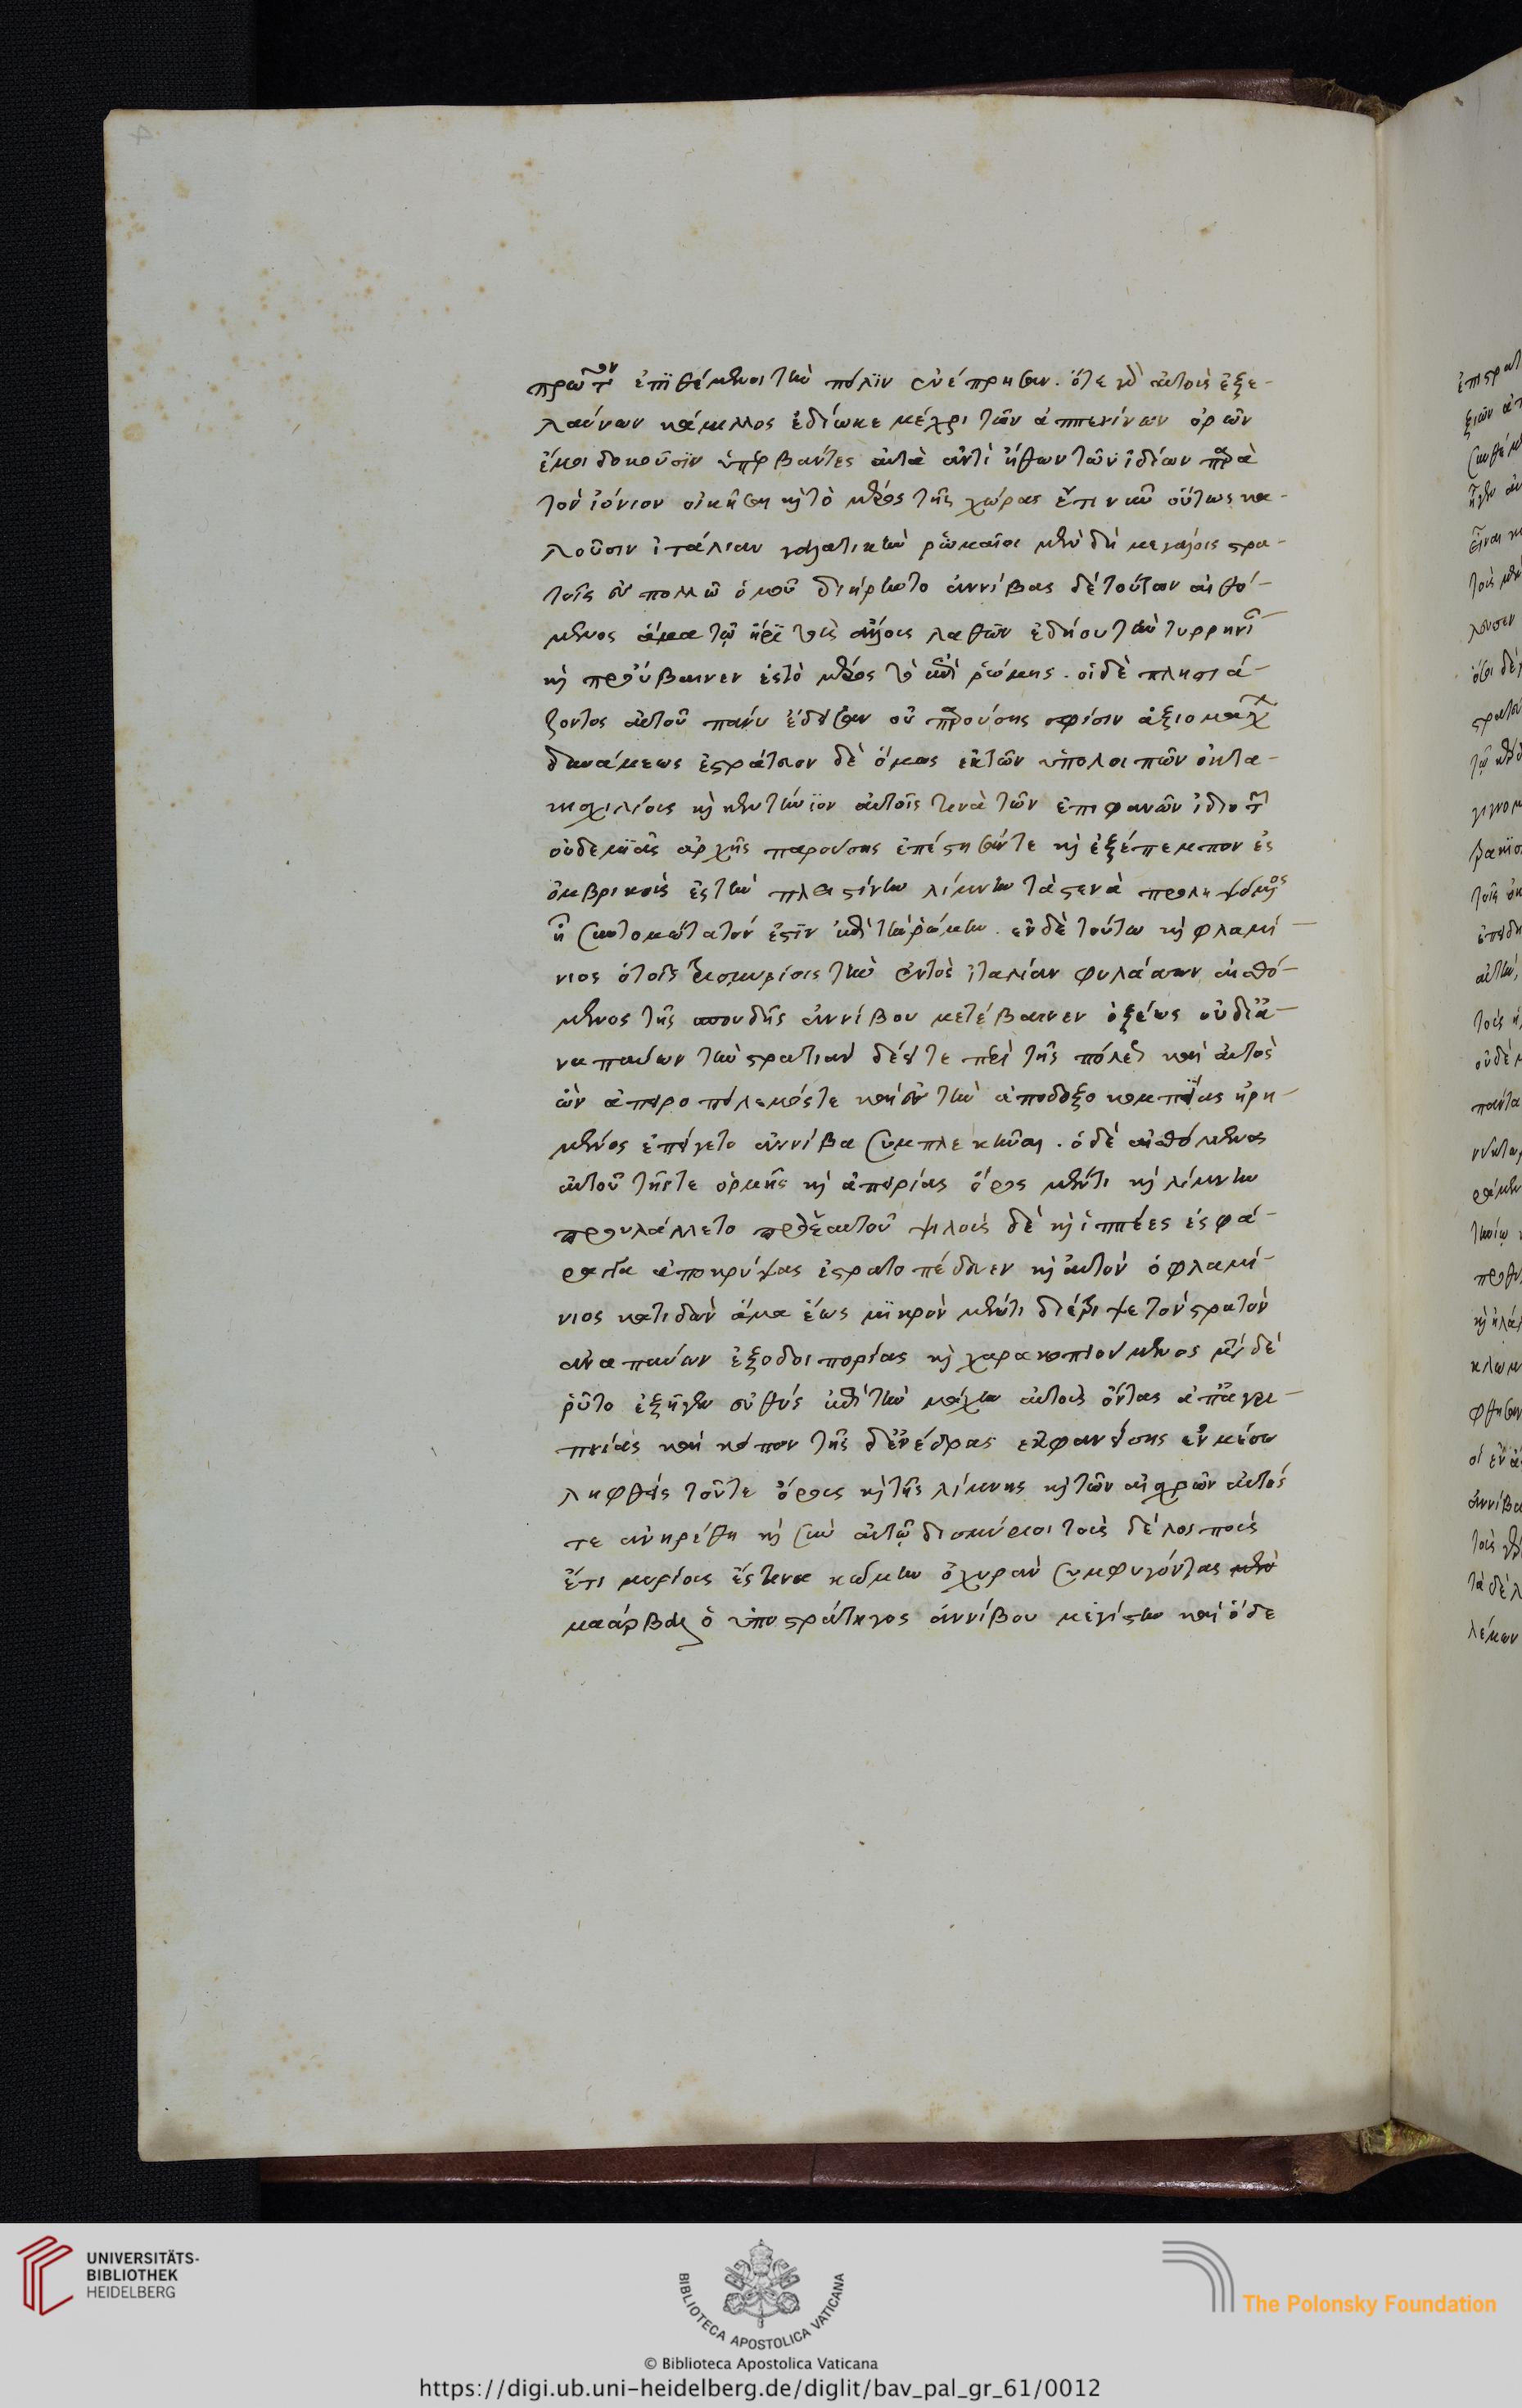 πρῶτον ἐπιθέμενοι τὴν πόλιν ἐνέπρησαν. ὅτε γὰρ αὐτοὺς ἐξε-
λαύνων κάμιλλος ἐδίωκε μέχρι τῶν ἀππενίνων ὀρῶν
ἐμοι δοκοῦσιν ὑπερβάντες αὐτὰ ἀντὶ ἠθῶν τῶν ἰδίων παρὰ
τὸν ἰόνιον οἰκῆσαι καὶ τὸ μέρος τῆς χώρας ἔτι νῦν οὕτως κα-
λοῦσιν ἰταλίαν γαλατικὴν ῥωμαῖοι μὲν δὴ μεγάλοις στρα-
τοῖς ἐν πολλῷ ὁμοῦ διῄρηντο ἀννίβας δὲ τούτων αἰσθό-
μενος ἅμα τῷ ἦρι τοὺς ἄλλους λαθὼν ἐδῄου τὴν τυρρηνί
καὶ προύβαινεν ἐς τὸ μέρος τὸ ἐπὶ ῥώμης. οἱ δὲ πλησιά-
ζοντος αὐτοῦ πάνυ ἔδεισαν οὐ παρούσης σφίσιν ἀξιομάχ
δυνάμεως ἐστράτευον δὲ ὅμως ἐκ τῶν ὑπολοίπων ὀκτα-
κισχιλίους καὶ κεντήνιον αὐτοῖς τινὰ τῶν ἐπιφανῶν ἰδιωτ
οὐδεμιᾶς ἀρχῆς παρούσης ἐπέστησάν τε καὶ ἐξέπεμπον ἐς
ὀμβρικοὺς ἐς τὴν πλειστίνην λίμνην τὰ στενὰ προληψόμενος
ᾗ συντομώτατόν ἐστιν ἐπὶ τὴν ῥώμην. ἐν δὲ τούτῳ καὶ φλαμί-
νιος ὁ τοῖς τρισμυρίοις τὴν ἐντὸς ἰταλίαν φυλάσσων αἰσθό-
μενος τῆς σπουδῆς ἀννίβου μετέβαινεν ὀξέως οὐ δια-
ναπαύων τὴν στρατιὰν δέει τε περὶ τῆς πόλεως καὶ αὐτὸς
ὢν ἀπειροπόλεμός τε καὶ ἐς τὴν ἀποδοξοκομπίας ᾑρη-
μένος ἐπείγετο ἀννίβᾳ συμπλεκῆναι. ὁ δὲ αἰσθόμενος
αὐτοῦ τῆς τε ὁρμῆς καὶ ἀπειρίας ὄρος μέν τι καὶ λίμνην
προυλάλλετο πρὸ ἑαυτοῦ ψιλοὺς δὲ καὶ ἱππέες ἐς φά-
ραγγα ἀποκρύψας ἐστρατοπέδευεν καὶ αὐτὸν ὁ φλαμί-
νιος κατιδὼν ἅμα ἕως μικρὸν μέν τι διέτριψε τὸν στρατὸν
ἀναπαύων ἐξ ὁδοιπορίας καὶ χαρακοποιούμενος μετὰ δὲ
τοῦτο ἐξῆγεν εὐθὺς ἐπὶ τὴν μάχην αὐτοὺς ὄντας ἀπ' ἀγρυ-
πνίας καὶ κόπου τῆς δ' ἐνέδρας ἐκφανείσης ἐν μέσῳ
ληφθεὶς τοῦ τε ὄρους καὶ τῆς λίμνης καὶ τῶν ἐχθρῶν αὐτός
τε ἀνῃρέθη καὶ σὺν αὐτῷ δισμύριοι τοὺς δὲ λοιποὺς
ἔτι μυρίους ἔς τινα κώμην ὀχυρὰν συμφυγόντας
μαάρβας ὁ ὑποστράτηγος ἀννίβου μεγίστην καὶ ὅδε
UNIVERSITÄTS-
BIBLIOTHEK
HEIDELBERG
BIBLIOTECA APOSTOLICA VATICANA
The Polonsky Foundation
© Biblioteca Apostolica Vaticana
https://digi.ub.uni-heidelberg.de/diglit/bav_pal_gr_61/0012